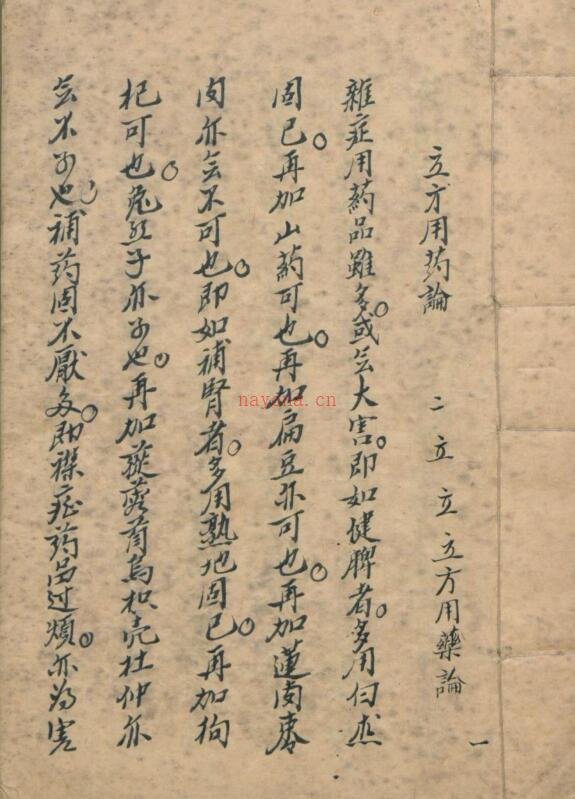 立方用药論 二 立 立 立方用藥論
一
雜症用药品雖多。或无大害。即如健脾者。多用白朮
固已。再加山药可也。再加扁豆亦可也。再加蓮肉
肉亦无不可也。即如補腎者。多用熟地固已。再加枸
杞可也。兔丝子亦可也。再加蓯蓉首烏枳壳杜仲亦
无不可也。補药固不厭多。即襍症药品过煩。亦为害
nayona.cn